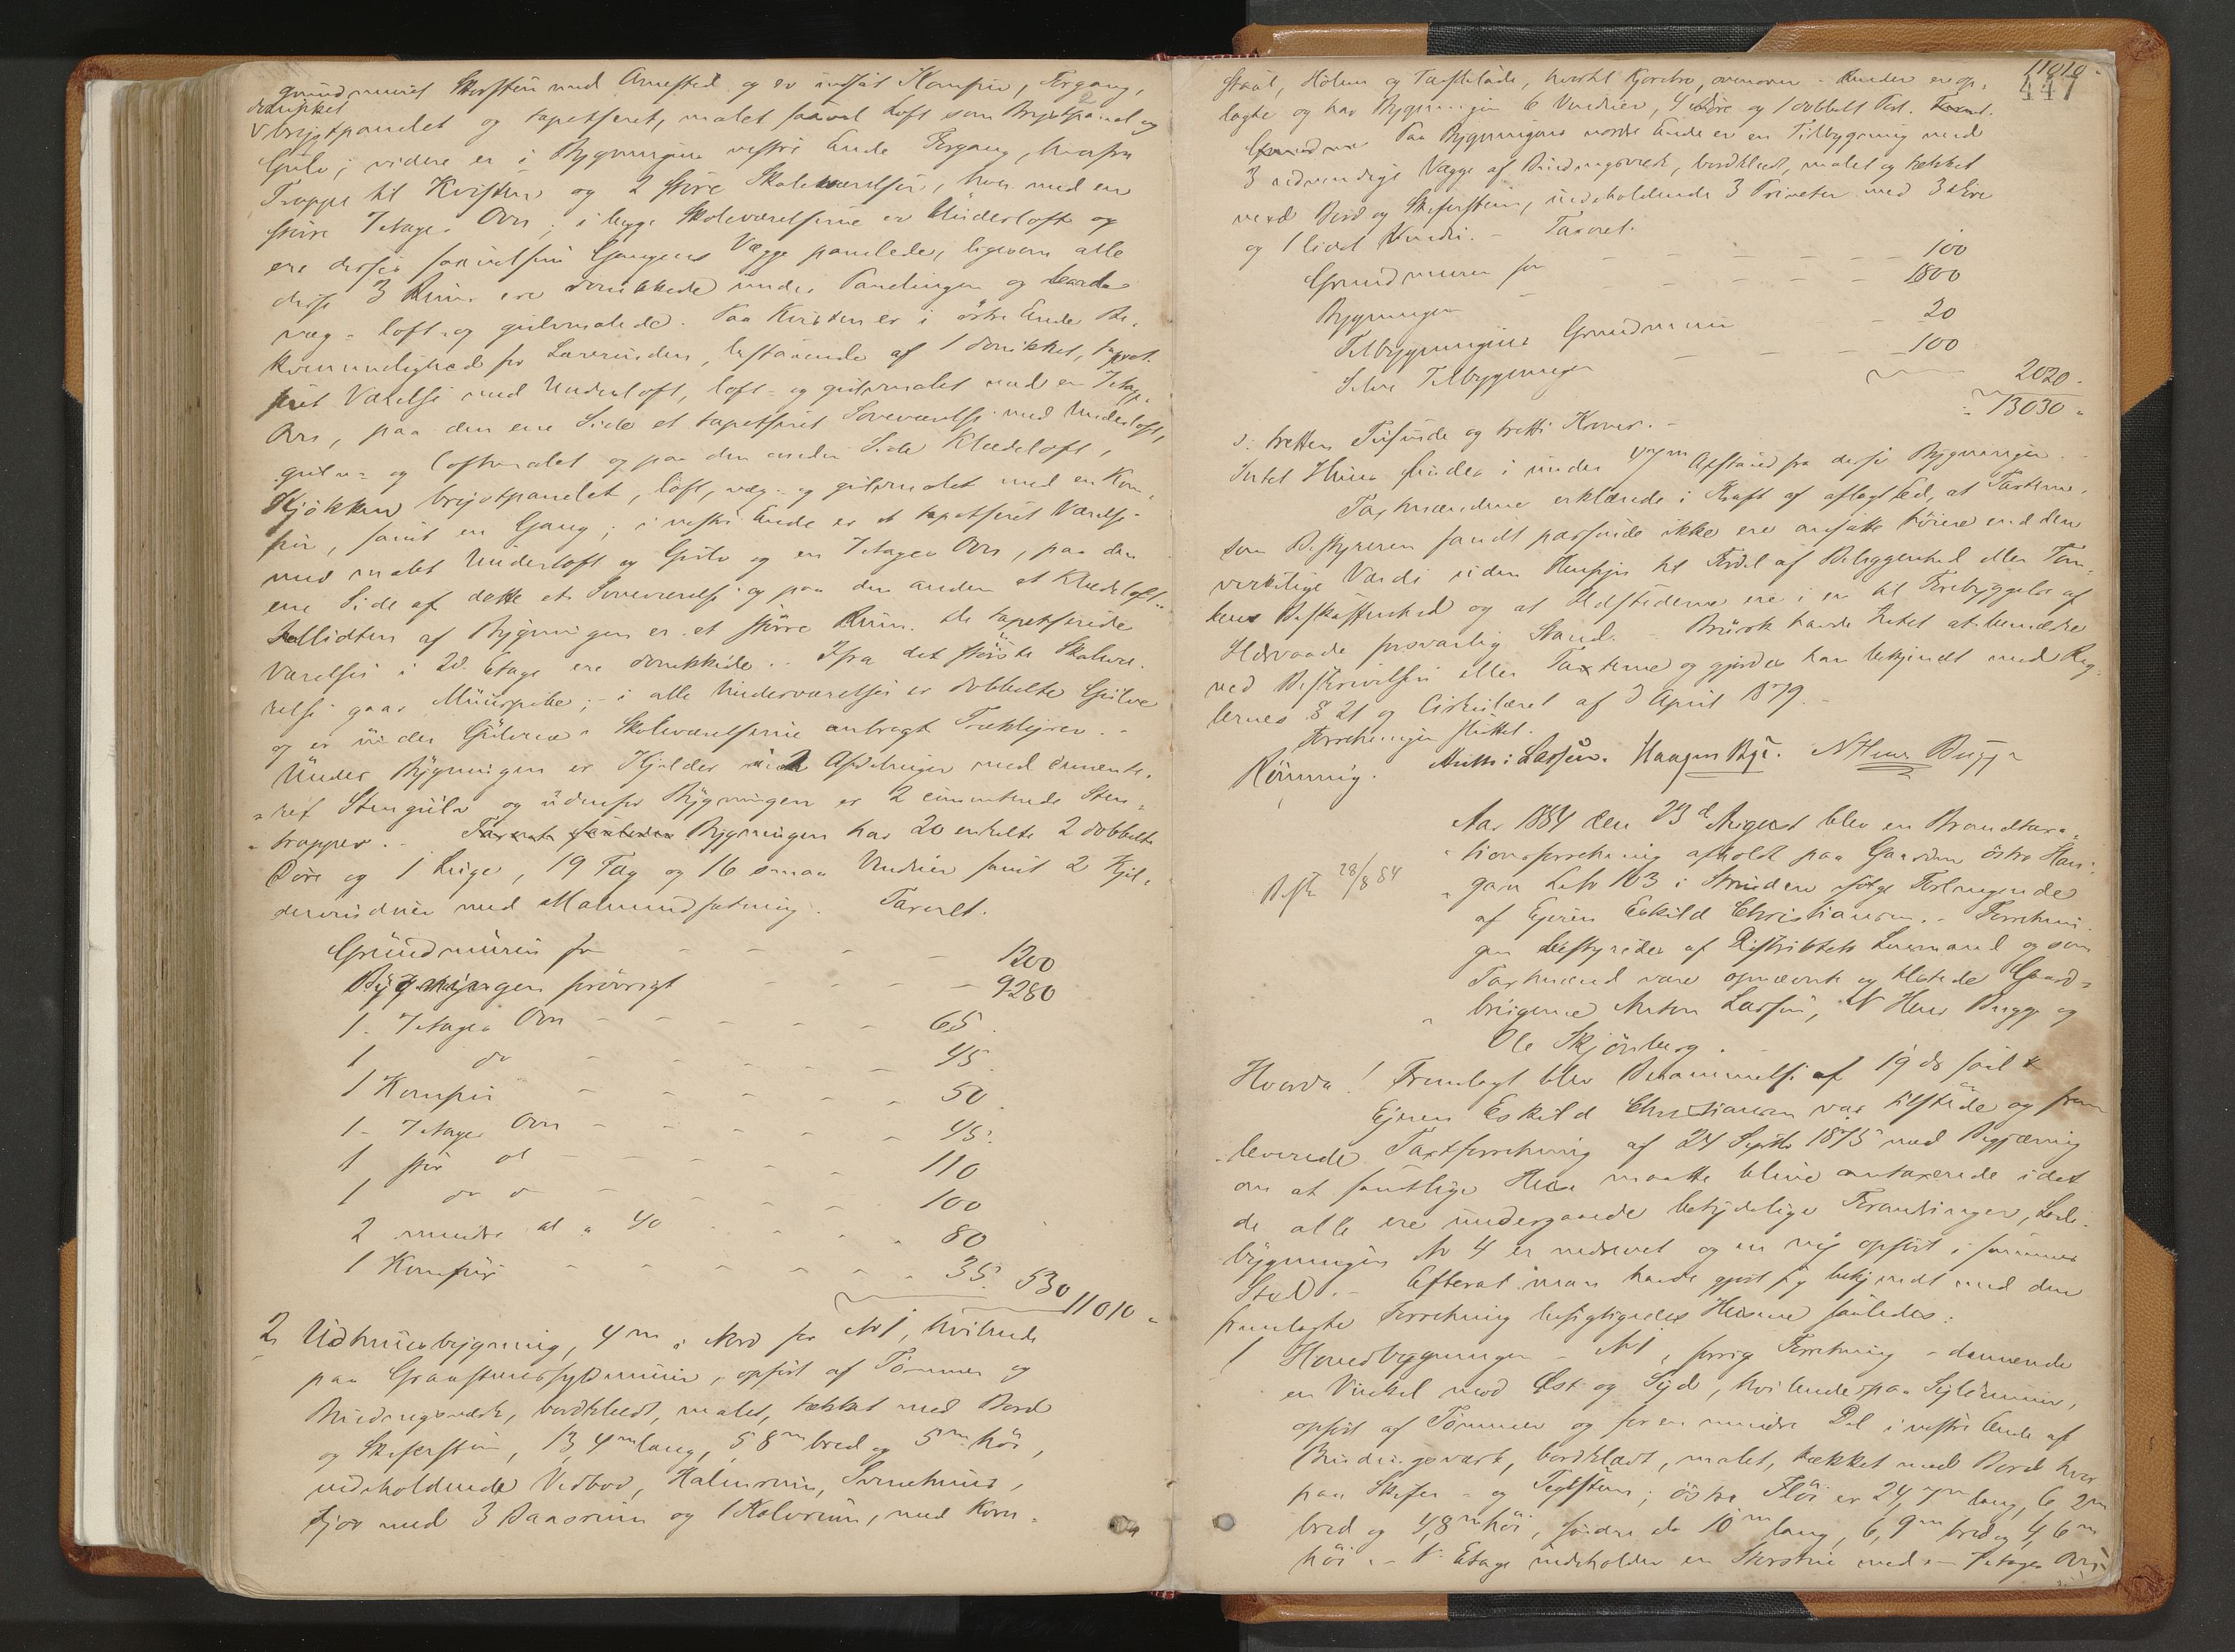 grundmuret Skorsten med Arnested og er indsat Komfur, Forgang,
donikket
brystpanelet og tapetseret, malet saavel Loft som Brystpanel og
Gulv; videre er i Bygningens vestre Ende Forgang, hvorfra
Trappe til Kvisten og 2 større Skoleværelser, hver med en
større 7 Etages Ovn; i begge Skoleværelserne er Underloft og
ere disses samt Gangens Vægge panelede, ligesom alle
disse 3 Rum ere donikkede under Panelingen og
væg- loft- og gulvmalede. Paa Kvisten er i østre Ende Be-
kvemmelighed for Lærerinden, bestaaende af 1 donikket, tapet-
seret Værelse med Underloft, loft- og gulvmalet med en 7 Etag.
Ovn, paa den ene Side et tapetseret Soveværelse med Underloft,
gulv- og loftmalet og paa den anden Side Klædeloft,
Kjøkken brystpanelet, loft, væg- og gulvmalet med en Kom-
fur, samt en Gang; i vestre Ende er et tapetseret Værelse
med malet Underloft og Gulv og en 7 Etages Ovn, paa den
ene Side af dette et Soveværelse og paa den anden et Klædeloft.
Midten af Bygningen er et større Rum. De tapetserede
Værelser i 2d. Etage ere donikkede. Ifra det største Skolevæ-
relse gaar Muurpibe; i alle Underværelser er dobbelte Gulve
og er under Gulvene i Skoleværelserne anbragt Trækhyrer.
Under Bygningen er Kjelder i 2 Afdelinger med cemente-
ret Stengulv og udenfor Bygningen er 2 cementerede Sten-
trapper. - Bygningen har 20 enkelte 2 dobbelte
Døre og 1 Luge, 19 Fag og 16 smaa Vinduer samt 2 Kjel-
dervinduer med Indfatning. Taxeret.
Grundmuren for - - - - - 1200
Bygningen forøvrigt - - - - 9280
1. 7 Etages Ovn - - - - - 65.
1 do - - - - - 45.
1 Komfur - - - - - 50.
1 - 7 Etages Ovn - - - - 45.
1 stør do - - - - - 110
1 do do - - - - 100
2 mindre do a 40 - - - 80
1 Komfur - - - - - 35. 530
11010 -
2, Udhuusbygning, 4m i Nord for No 1, hvilende
paa Graastensfyldmuur, opført af Tømmer og
Bindingsværk, bordklædt, malet, tækket med Bord
og Skifersten, 13,4m lang, 5,8m bred og 5m høi,
indeholdende Vedbod, Halmrum, Svinehuus,
Fjøs med 3 Baasrum og 1 Kalverum, med Korn-
11010 -
447
Stald, Høilem og , hvortil Kjørebro, ovenover. Kunder ere op-
lagte og har Bygningen 6 Vinduer, 4 Døre og 1 dobbelt Port.
Paa Bygningens nordre Ende er en Tilbygning med
3 udvendige Vægge af Bindingsværk, bordklædt, malet og tækket
med Bord og Skifersten, indeholdende 3 Priveter med 3 Døre
og 1 lidet Vindu. - Taxeret.
Grundmuren for - - - - - - 100
Bygningen - - - - - - 1800
Tilbygningens Grundmuur - - 20
Selve Tilbygningen - - - - 100
2020 -
13030 -
: tretten Tusinde og tretti Kroner. -
Intet Huus findes i under Afstand fra disse Bygninger.
Taxmændene erklærede i Kraft af aflagt Ed, at Taxterne,
som Bestyreren fandt passende ikke ere ansatte høiere end den
virkelige Værdi uden Hensyn til Fordel af Beliggenhed eller Tom-
tens Beskaffenhed og at Ildstederne ere i en til Forebyggelse af
Ildsvaade forsvarlig Stand. - havde Intet at bemærke
ved Beskrivelsen eller Taxterne og gjordes han bekjendt med Reg-
lernes § 21 og Cirkulæret af 3 April 1879. -
Forretningen sluttet.
Rönning. Lassen. Haagen N Huus Bugge
Befk 28/8 84
Aar 1884 den 23d August blev en Brandtaxa-
tionsforretning afholdt paa Gaarden østre
Lebr 103 i Strinden ifølge Forlangende
af Eieren Eskild Christiansen. - Forretnin-
gen bestyredes af Distriktets Lensmand og som
Taxmænd vare opnævnte og mødte Gaard-
brugerne Anton Lassen, N Huus Bugge og
Ole Skjønberg.
Hvorda! Fremlagt blev Berammelse af 19 ds
Eieren Eskild Christiansen var tilstede og frem
leverede Taxtforretning af 24 Septb 1875 med Begjæring
om at samtlige Huse maatte blive omtaxerede idet
de alle ere undergaaede betydelige Forandringer,
bygningen No 4 er nedrevet og en ny opført i sammes
Sted. - Efterat man havde gjort sig bekjendt med den
fremlagte Forretning besigtigedes Husene saaledes:
1 Hovedbygningen - No 1, forrige Forretning - dannende
en Vinkel mod Øst og Syd, hvilende paa Fyldmuur,
opført af Tømmer og for en mindre Del i vestre Ende af
Bindingsværk, bordklædt, malet, tækket med Bord hvor
paa Skifer- og Teglsten; østre Fløi er lang, 6,2m
bred og 4,8m høi, søndre do 10m lang, 6,9m bred og 4,6m
høi. - 1 Etage indeholder en Skorsten med en Etages Ovn